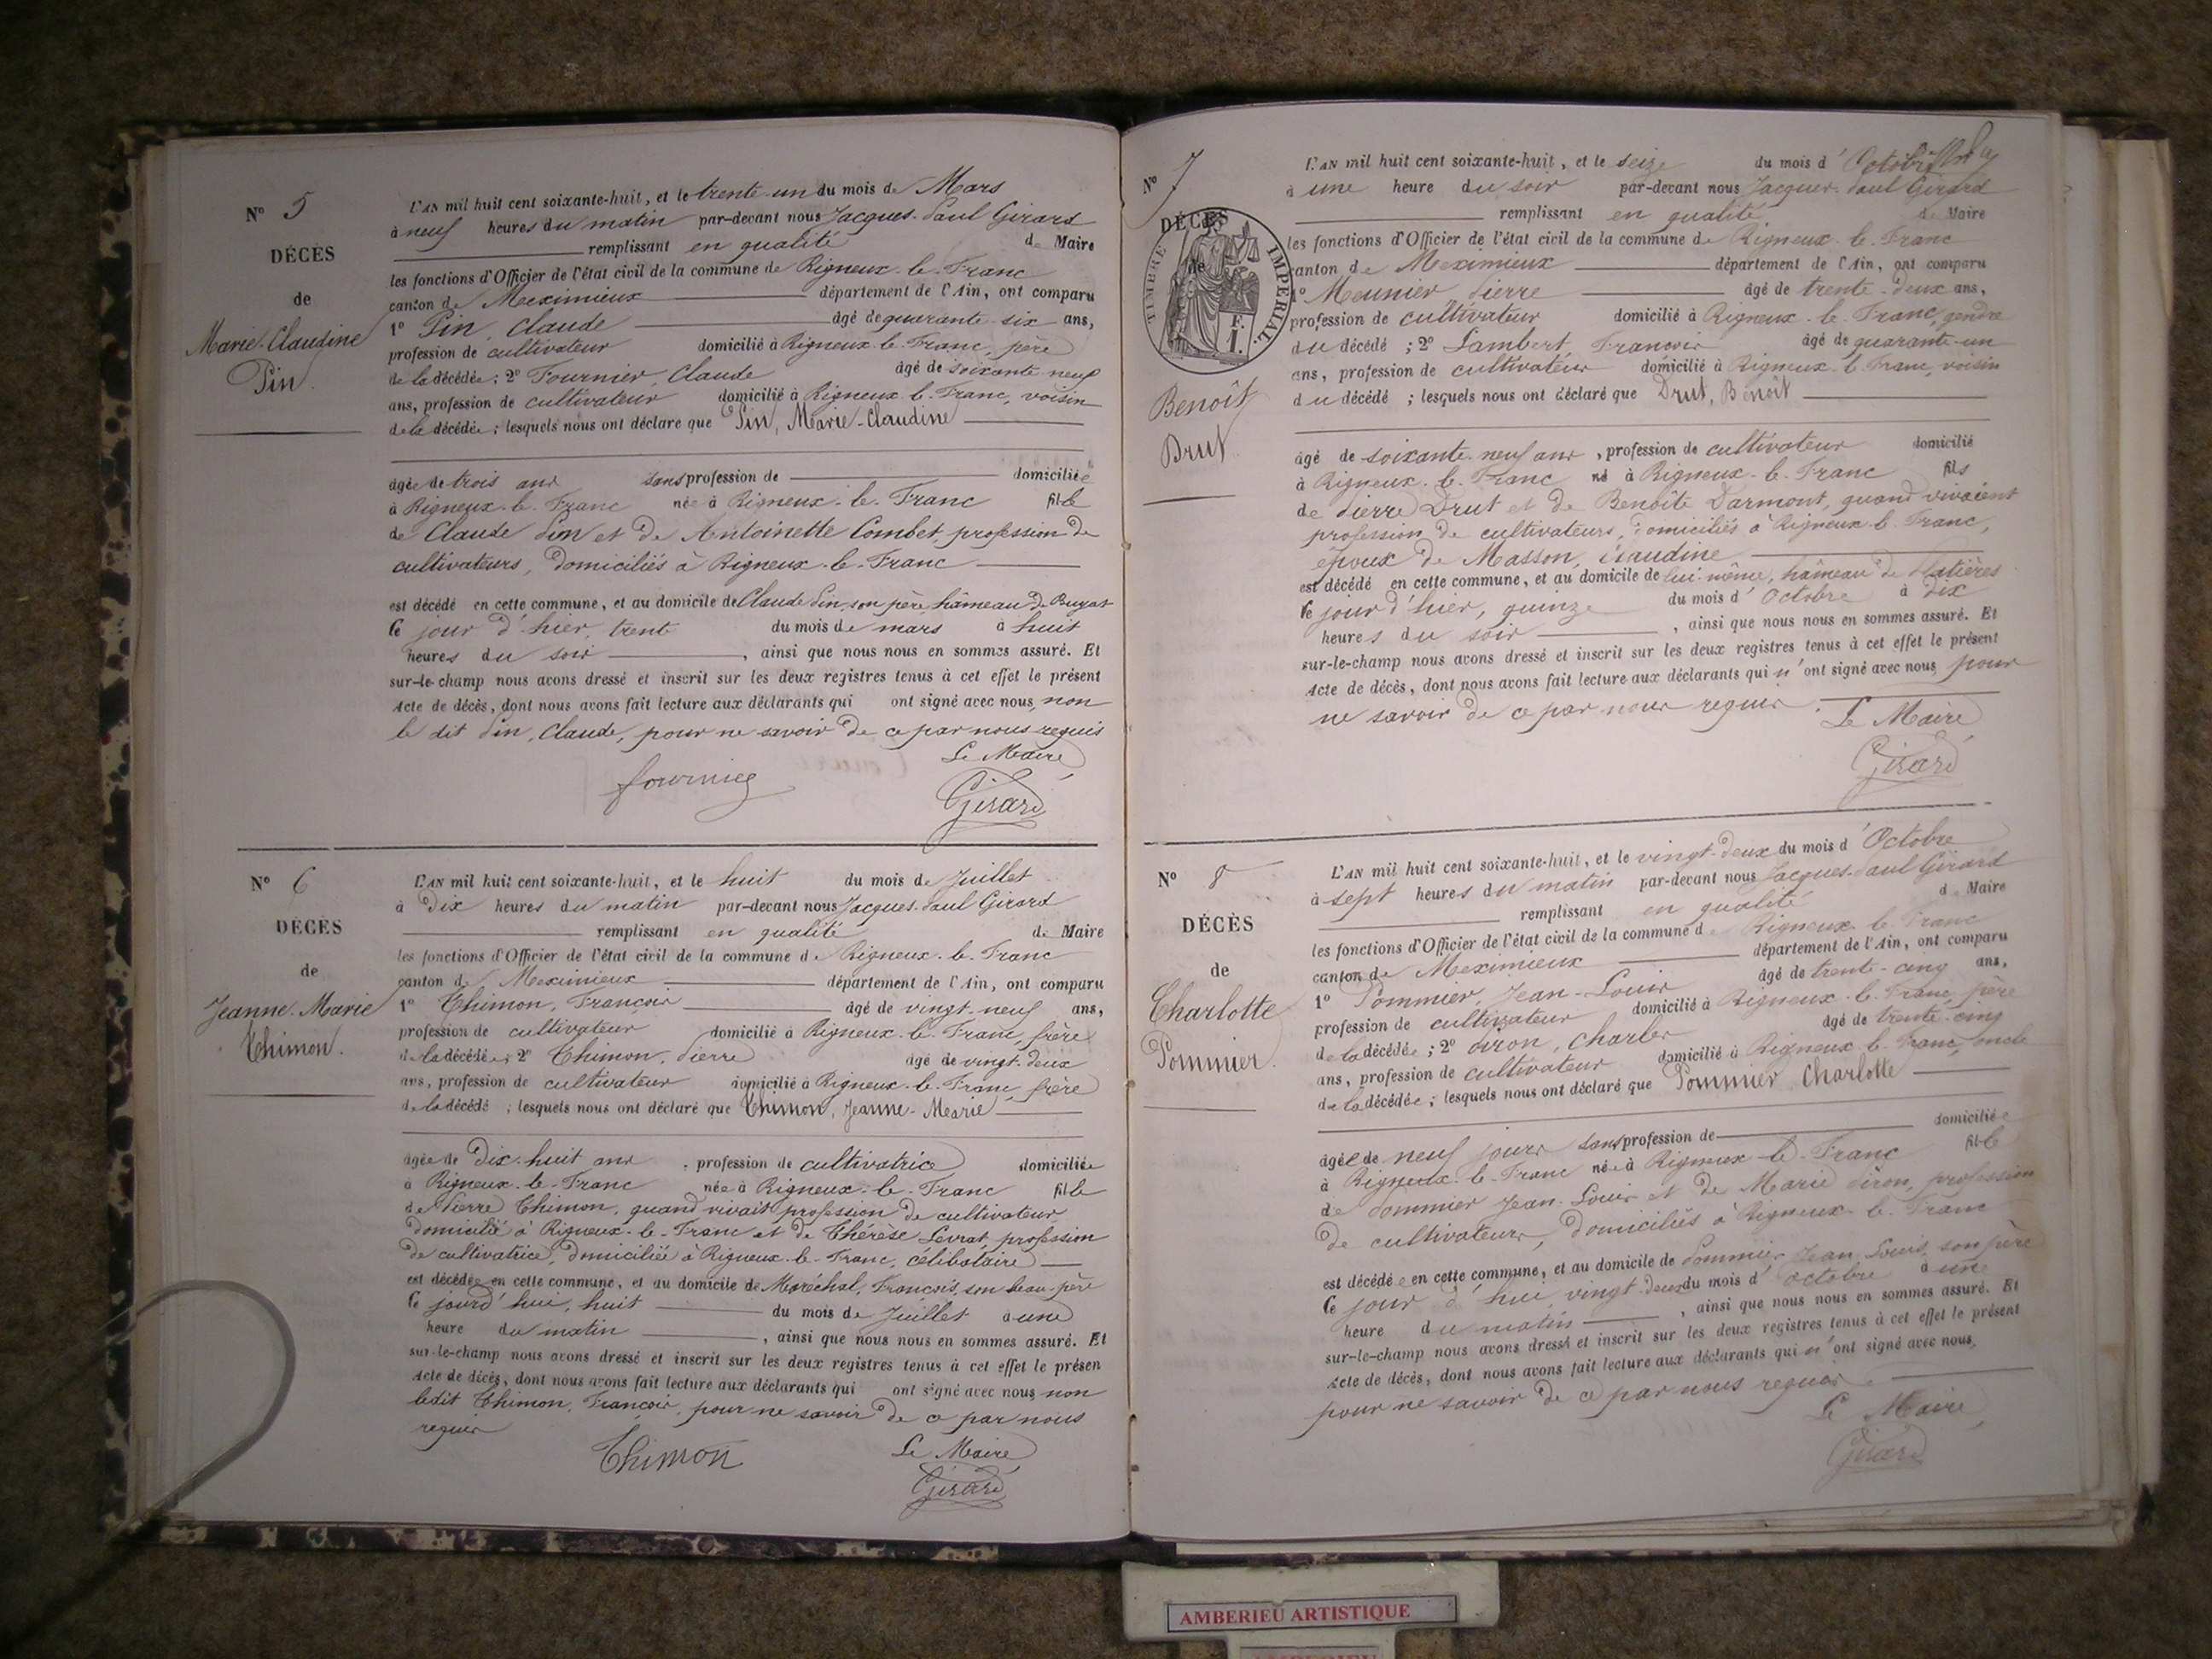 N° 5
DÉCÈS
de
Marie-Claudine
Pin.
L'AN mil huit cent soixante-huit, et le trente-un du mois de Mars
à neuf heures du matin par-devant nous Jacques-Paul Girard
remplissant en qualité de Maire
les fonctions d'Officier de l'état civil de la commune de Rigneux-le-Franc
canton de Meximieux département de l'Ain, ont comparu
1° Pin, Claude âgé de quarante-six ans,
profession de cultivateur domicilié à Rigneux-le-Franc, père
de la décédée; 2° Fournier, Claude âgé de soixante-neuf
ans, profession de cultivateur domicilié à Rigneux-le-Franc, voisin
de la décédée; lesquels nous ont déclaré que Pin, Marie-Claudine
âgée de trois ans sans profession de domiciliée
à Rigneux-le-Franc née à Rigneux-le-Franc fille
de Claude Pin et de Antoinette Combet, profession de
cultivateurs, domiciliés à Rigneux-le-Franc
est décédé en cette commune, et au domicile de Claude Pin, son père, hâmeau de
le jour d'hier, trente du mois de mars à huit
heures du soir, ainsi que nous nous en sommes assuré. Et
sur-le-champ nous avons dressé et inscrit sur les deux registres tenus à cet effet le présent
Acte de décès, dont nous avons fait lecture aux déclarants qui ont signé avec nous, non
le dit Pin, Claude, pour ne savoir de ce par nous requis
Le Maire
fournier Girard
N° 6
DÉCÈS
de
Jeanne-Marie
Thimon.
L'AN mil huit cent soixante-huit, et le huit du mois de Juillet
à dix heures du matin par-devant nous Jacques-Paul Girard
remplissant en qualité de Maire
les fonctions d'Officier de l'état civil de la commune de Rigneux-le-Franc
canton de Meximieux département de l'Ain, ont comparu
1° Thimon, François âgé de vingt-neuf ans,
profession de cultivateur domicilié à Rigneux-le-Franc, frère
de la décédée; 2° Thimon, Pierre âgé de vingt-deux
ans, profession de cultivateur domicilié à Rigneux-le-Franc, frère
de la décédé; lesquels nous ont déclaré que Thimon, Jeanne-Marie
âgée de dix-huit ans, profession de cultivatrice domiciliée
à Rigneux-le-Franc née à Rigneux-le-Franc fille
de Pierre Thimon, quand vivait profession de cultivateur
domicilié à Rigneux-le-Franc et de Thérèse Levrat, profession
de cultivatrice, domiciliée à Rigneux-le-Franc, célibataire
est décédée en cette commune, et au domicile de Maréchal, François, son beau-père
le jourd'hui, huit du mois de Juillet à une
heure du matin, ainsi que nous nous en sommes assuré. Et
sur-le-champ nous avons dressé et inscrit sur les deux registres tenus à cet effet le présen
Acte de décès, dont nous avons fait lecture aux déclarants qui ont signé avec nous, non
ledit Thimon, François, pour ne savoir de ce par nous
requis
Thimon Le Maire
Girard
N° 7
DÉCÈS
de
TIMBRE IMPERIAL.
F.
1.
Benoît
Drut
L'AN mil huit cent soixante-huit, et le seize du mois d'Octobre
à une heure du soir par-devant nous Jacques-Paul Girard
remplissant en qualité de Maire
les fonctions d'Officier de l'état civil de la commune de Rigneux-le-Franc
canton de Meximieux département de l'Ain, ont comparu
1° Meunier Pierre âgé de trente-deux ans,
profession de cultivateur domicilié à Rigneux-le-Franc, gendre
du décédé; 2° Lambert, François âgé de quarante-un
ans, profession de cultivateur domicilié à Rigneux-le-Franc, voisin
du décédé; lesquels nous ont déclaré que Drut, Benoît
âgé de soixante-neuf ans, profession de cultivateur domicilié
à Rigneux-le-Franc né à Rigneux-le-Franc fils
de Pierre Drut et de Benoîte Darmont, quand vivaient
profession de cultivateurs, domiciliés à Rigneux-le-Franc,
époux de Masson, Claudine
est décédé en cette commune, et au domicile de lui-même, hâmeau de
le jour d'hier, quinze du mois d'Octobre à dix
heures du soir, ainsi que nous nous en sommes assuré. Et
sur-le-champ nous avons dressé et inscrit sur les deux registres tenus à cet effet le présent
Acte de décès, dont nous avons fait lecture aux déclarants qui n'ont signé avec nous, pour
ne savoir de ce par nous requis.
Le Maire
Girard
N° 8
DÉCÈS
de
Charlotte
Pommier.
L'AN mil huit cent soixante-huit, et le vingt-deux du mois d'Octobre
à sept heures du matin par-devant nous Jacques-Paul Girard
remplissant en qualité de Maire
les fonctions d'Officier de l'état civil de la commune de Rigneux-le-Franc
canton de Meximieux département de l'Ain, ont comparu
1° Pommier, Jean-Louis âgé de trente-cinq ans,
profession de cultivateur domicilié à Rigneux-le-Franc, père
de la décédée; 2° Piron, Charles âgé de trente-cinq
ans, profession de cultivateur domicilié à Rigneux-le-Franc, oncle
de la décédée; lesquels nous ont déclaré que Pommier Charlotte
âgée de neuf jours sans profession de domiciliée
à Rigneux-le-Franc née à Rigneux-le-Franc fille
de Pommier Jean-Louis et de Marie Piron, profession
de cultivateurs, domiciliés à Rigneux-le-Franc
est décédée en cette commune, et au domicile de Pommier Jean Louis, son père
le jour d'hui, vingt-deux du mois d'octobre à une
heure du matin, ainsi que nous nous en sommes assuré. Et
sur-le-champ nous avons dressé et inscrit sur les deux registres tenus à cet effet le présent
Acte de décès, dont nous avons fait lecture aux déclarants qui n'ont signé avec nous,
pour ne savoir de ce par nous requis.
Le Maire
Girard
AMBERIEU ARTISTIQUE
AMBERIEU